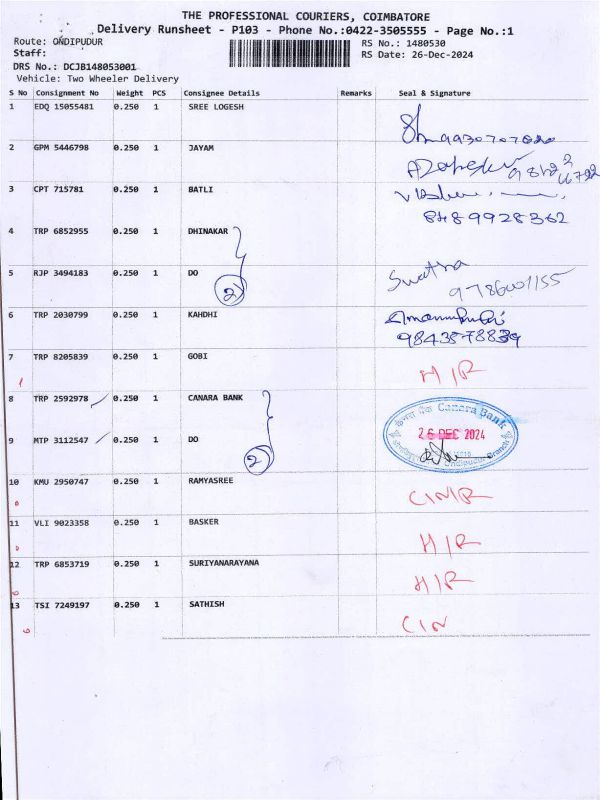 THE PROFESSIONAL COURIERS, COIMBATORE
Delivery Runsheet - P103 - Phone No.:0422-3505555 - Page No.:1
Route: ONDIPUDUR
RS No.: 1480530
Staff:
RS Date: 26-Dec-2024
DRS No.: DCJB148053001
Vehicle: Two Wheeler Delivery
S No Consignment No Weight PCS Consignee Details Remarks Seal & Signature
1 EDQ 15055481 0.250 1 SREE LOGESH
2 GPM 5446798 0.250 1 JAYAM
3 CPT 715781 0.250 1 BATLI
8489928362
4 TRP 6852955 0.250 1 DHINAKAR
5 RJP 3494183 0.250 1 DO
2
Swatha
6 TRP 2030799 0.250 1 KAHDHI
9843578839
7 TRP 8205839 0.250 1 GOBI
H/R
8 TRP 2592978 0.250 1 CANARA BANK
Canara Bank
26 DEC 2024
9 MTP 3112547 0.250 1 DO
2
10 KMU 2950747 0.250 1 RAMYASREE
11 VLI 9023358 0.250 1 BASKER
H/R
12 TRP 6853719 0.250 1 SURIYANARAYANA
H/R
13 TSI 7249197 0.250 1 SATHISH